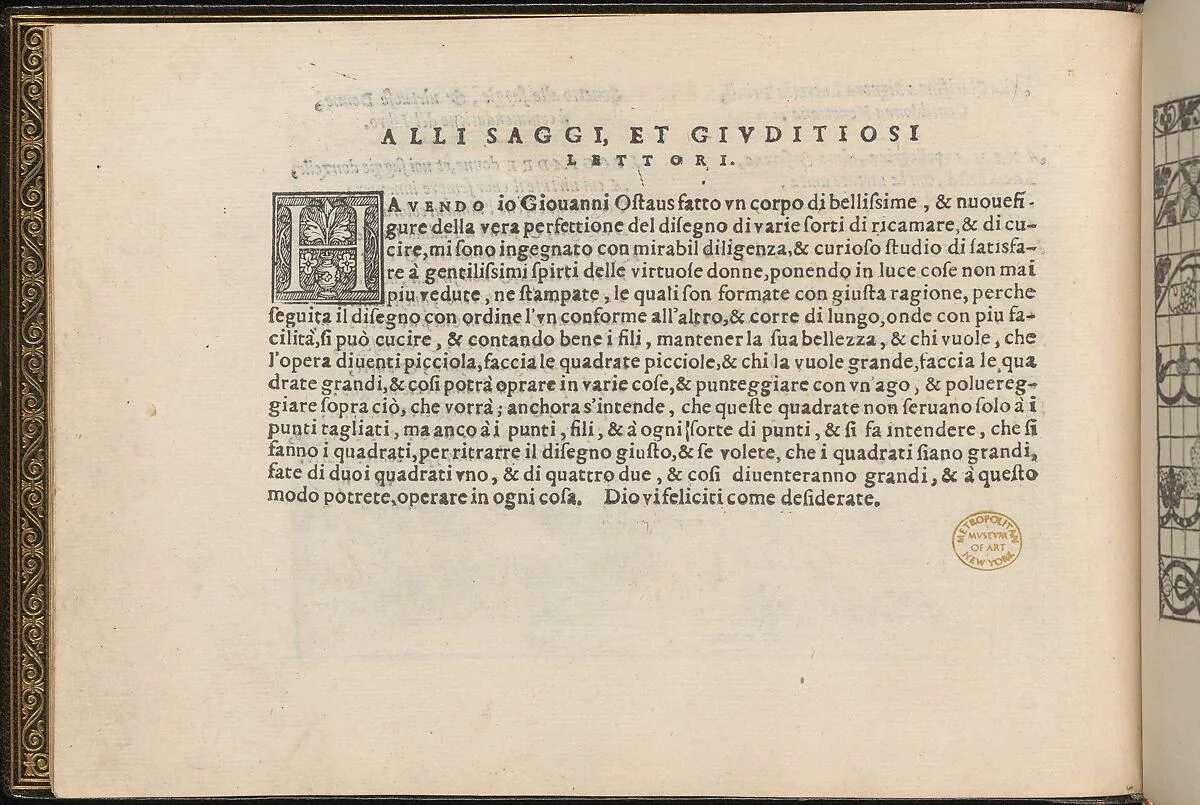 ALLI SAGGI, ET GIVDITIOSI
LETTORI.
HAVENDO io Giouanni Oſtaus fatto vn corpo di belliſsime, & nuoue fi-
gure della vera perfettione del diſegno di varie ſorti di ricamare, & di cu-
cire, mi ſono ingegnato con mirabil diligenza, & curioſo ſtudio di ſatisfa-
re à gentiliſsimi ſpirti delle virtuoſe donne, ponendo in luce coſe non mai
piu vedute, ne ſtampate, le quali ſon formate con giuſta ragione, perche
ſeguita il diſegno con ordine l'vn conforme all'altro, & corre di lungo, onde con piu fa-
cilità, ſi può cucire, & contando bene i fili, mantener la ſua bellezza, & chi vuole, che
l'opera diuenti picciola, faccia le quadrate picciole, & chi la vuole grande, faccia le qua
drate grandi, & coſi potrà oprare in varie coſe, & punteggiare con vn'ago, & poluereg-
giare ſopra ciò, che vorrà; anchora s'intende, che queſte quadrate non ſeruano ſolo à i
punti tagliati, ma anco à i punti, fili, & à ogni ſorte di punti, & ſi fa intendere, che ſi
fanno i quadrati, per ritrarre il diſegno giuſto, & ſe volete, che i quadrati ſiano grandi,
fate di duoi quadrati vno, & di quattro due, & coſi diuenteranno grandi, & à queſto
modo potrete, operare in ogni coſa. Dio vi feliciti come deſiderate.
METROPOLITAN
MVSEVM
OF ART
NEW YORK